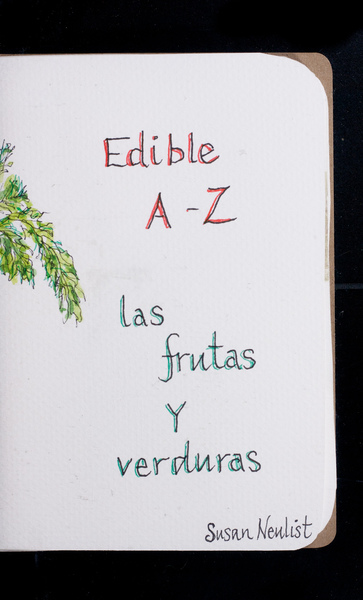 Edible
A - Z
las
frutas
y
verduras
Susan Neulist